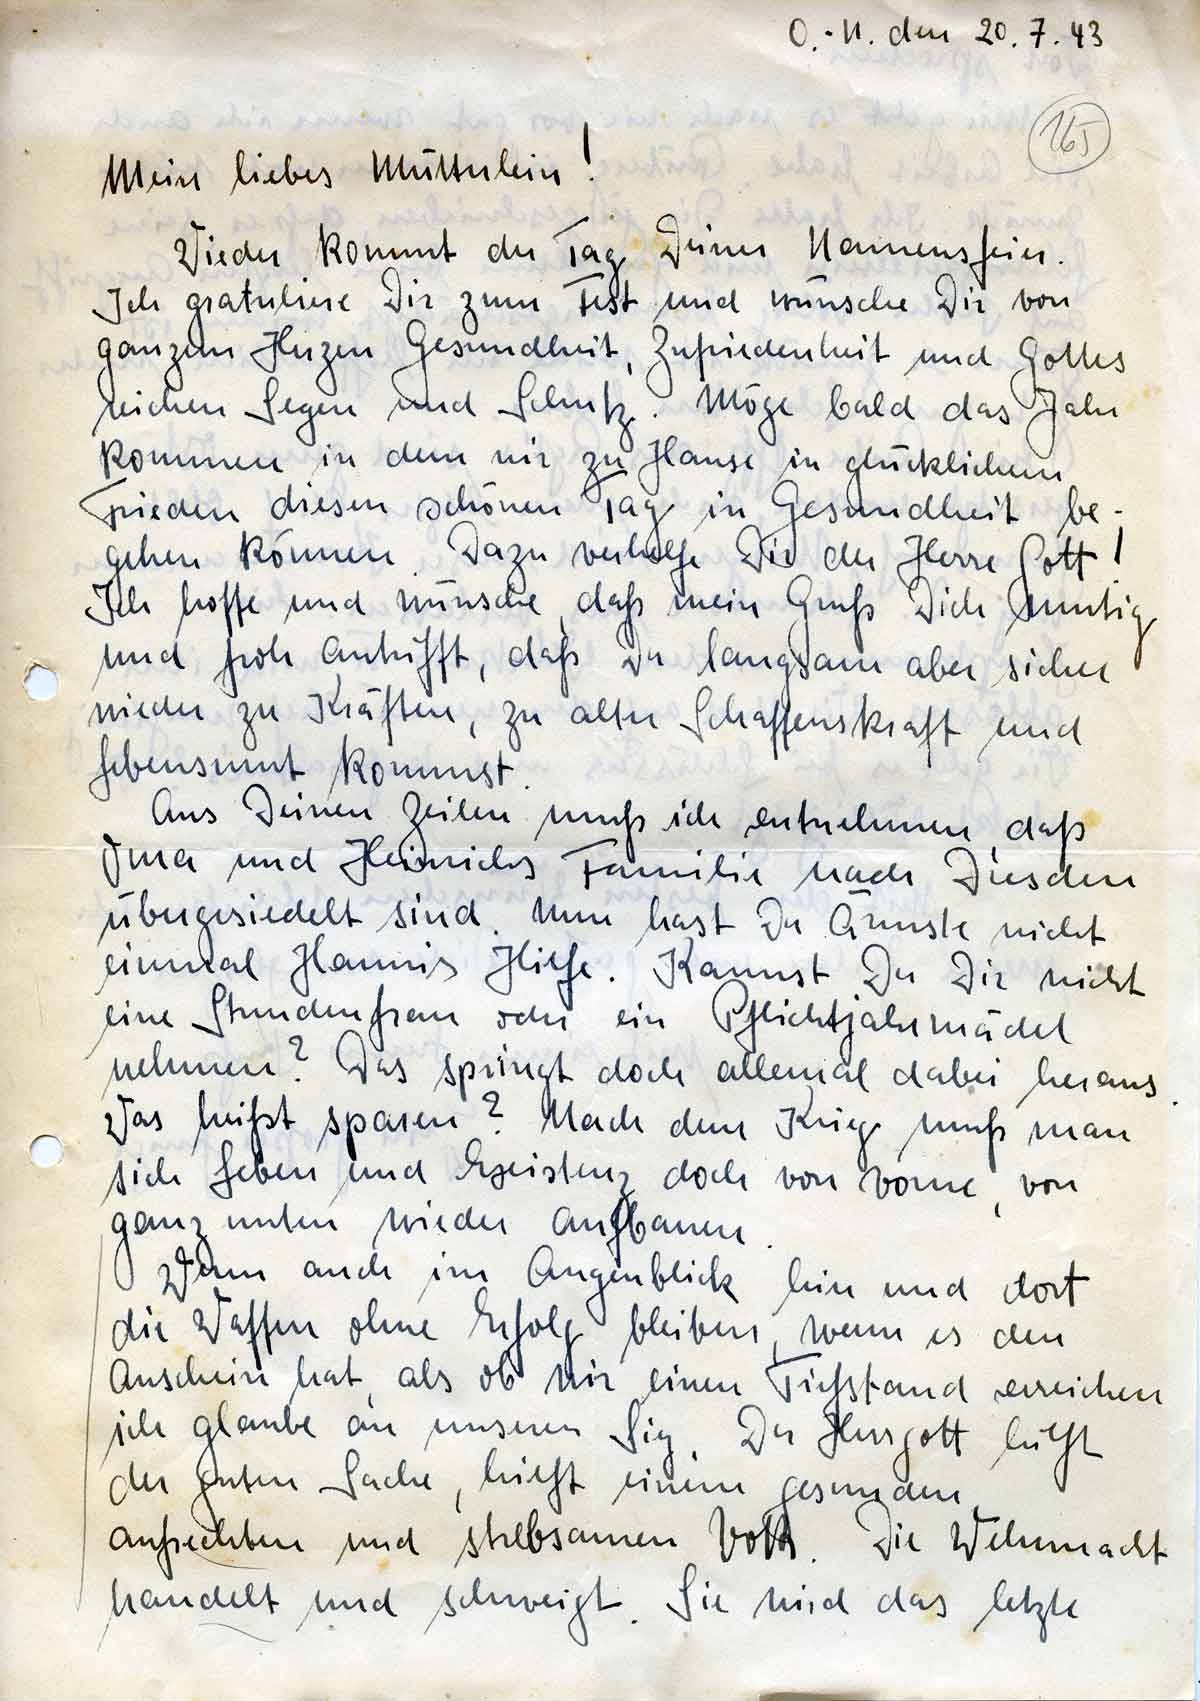 O.-U. den 20.7.43
165
Mein liebes Mütterlein!
Wieder kommt der Tag Deiner Namensfeier.
Ich gratuliere Dir zum Fest und wünsche Dir von
ganzem Herzen Gesundheit, Zufriedenheit und Gottes
reichen Segen und Schutz. Möge bald das Jahr
kommen in dem wir zu Hause in glücklichem
Frieden diesen schönen Tag in Gesundheit be-
gehen können. Dazu verhelfe Dir der Herre Gott!
Ich hoffe und wünsche, daß mein Gruß Dich mutig
und froh antrifft, daß Du langsam aber sicher
wieder zu Kräften, zu alter Schaffenskraft und
Lebensmut kommst.
Aus Deinen Zeilen muß ich entnehmen, daß
Irma und Heinrichs Familie nach Dresden
übergesiedelt sind. Nun hast Du Ärmste nicht
einmal Hannis Hilfe. Kannst Du Dir nicht
eine Stundenfrau oder ein Pflichtjahrmädel
nehmen? Das springt doch allemal dabei heraus.
Was heißt sparen? Nach dem Krieg muß man
sich Leben und Existenz doch von vorne, von
ganz unten wieder aufbauen.
Wenn auch im Augenblick hin und dort
die Waffen ohne Erfolg bleiben, wenn es den
Anschein hat, als ob wir einen Tiefstand erreichen
ich glaube an unseren Sieg. Der Herrgott hilft
der guten Sache, hilft einem gesunden,
aufrechten und strebsamen Volk. Die Wehrmacht
handelt und schweigt. Sie wird das letzte